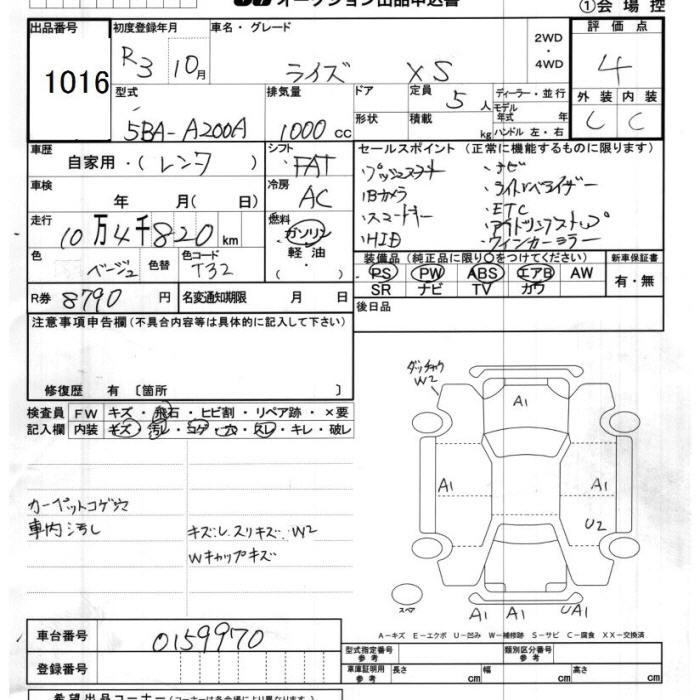 オークション出品申込書
①会場控
出品番号 初度登録年月 車名・グレード 2WD・4WD 評価点
1016 R3 10月 ライズ XS 4
型式 排気量 ドア 定員 ディーラー・並行 外装 内装
5BA-A200A 1000cc 5人 モデル年式 年 C C
形状 積載 kg ハンドル 左・右
車歴 シフト セールスポイント (正常に機能するものに限ります)
自家用・(レンタ) FAT ・プッシュスタート ・ナビ
車検 冷房 ・Bカメラ ・ライトレベライザー
年 月(日) AC ・スマートキー ・ETC
走行 燃料 ・アイドリングストップ
10万4千820km ガソリン ・HID ・ウィンカーミラー
軽油
色 色替 色コード 装備品(純正品に限り○をつけてください) 新車保証書
ベージュ T32 PS PW ABS エアB AW 有・無
SR ナビ TV カワ
R券 8790円 名変通知期限 月 日 後日品
注意事項申告欄(不具合内容等は具体的に記入して下さい)
修復歴 有 〔箇所 〕
検査員 FW キズ・飛石・ヒビ割・リペア跡・×要
記入欄 内装 キズ・汚レ・コゲ・穴・スレ・キレ・破レ
W2
A1
A1 A1
U2
カーペットコゲ穴
車内汚し キズU.スリキズ.W2
Wキャップキズ
スペア A1 A1 UA1
A-キズ E-エクボ U-凹み W-補修跡 S-サビ C-腐食 XX-交換済
車台番号 0159970 型式指定番号 参考 類別区分番号 参考
登録番号 車庫証明用 参考 長さ cm 幅 cm 高さ cm
希望出品コーナー(コーナーは各会場により異なります。)